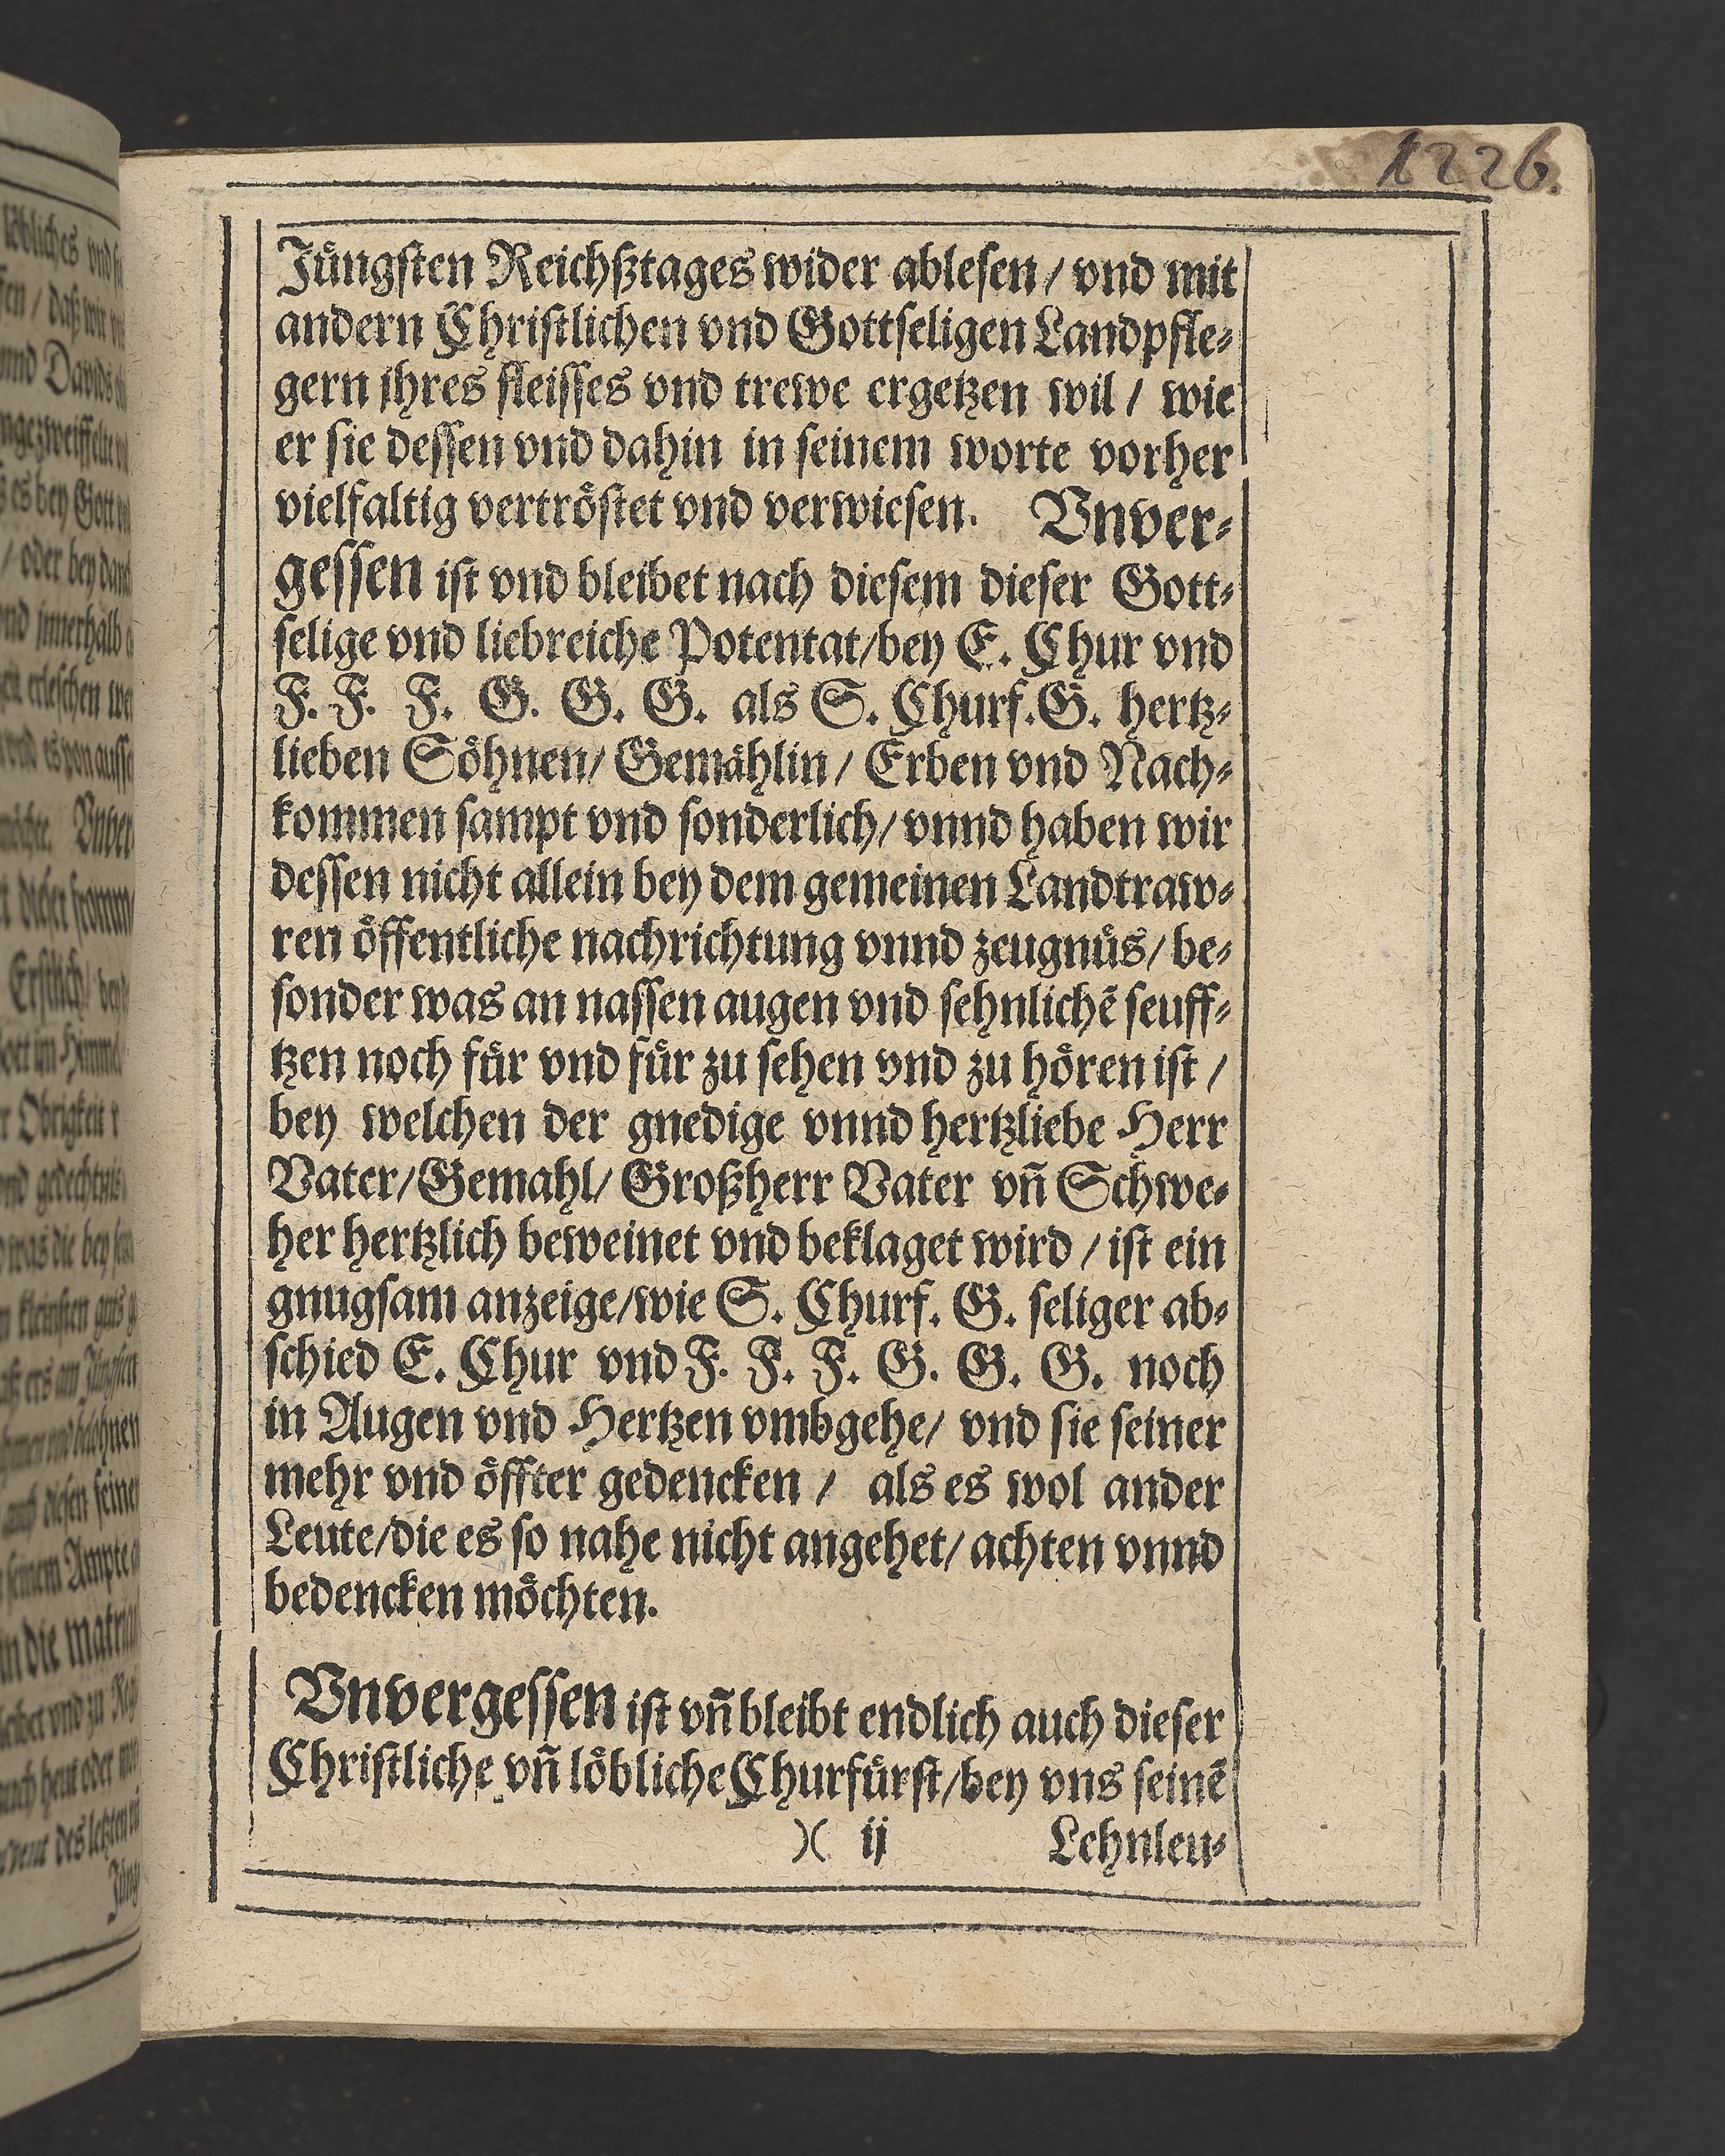 1226.
Jüngsten Reichßtages wider ablesen / vnd mit
andern Christlichen vnd Gottseligen Landpfle⸗
gern jhres fleisses vnd trewe ergetzen wil / wie
er sie dessen vnd dahin in seinem worte vorher
vielfaltig vertröstet vnd verwiesen. Vnver⸗
gessen ist vnd bleibet nach diesem dieser Gott⸗
selige vnd liebreiche Potentat/bey E. Chur vnd
F. F. F. G. G. G. als S. Churf.G. hertz⸗
lieben Söhnen/ Gemählin / Erben vnd Nach⸗
kommen sampt vnd sonderlich/ vnnd haben wir
dessen nicht allein bey dem gemeinen Landtraw⸗
ren öffentliche nachrichtung vnnd zeugnüs/ be⸗
sonder was an nassen augen vnd sehnlichē seuff⸗
tzen noch für vnd für zu sehen vnd zu hören ist /
bey welchen der gnedige vnnd hertzliebe Herr
Vater/Gemahl/ Großherr Vater vn̄ Schwe⸗
her hertzlich beweinet vnd beklaget wird / ist ein
gnugsam anzeige/wie S. Churf. G. seliger ab⸗
schied E. Chur vnd F. F. F. G. G. G. noch
in Augen vnd Hertzen vmbgehe/ vnd sie seiner
mehr vnd öffter gedencken / als es wol ander
Leute/die es so nahe nicht angehet/ achten vnnd
bedencken möchten.
Vnvergessen ist vn̄ bleibt endlich auch dieser
Christliche vn̄ löbliche Churfürst/bey vns seinē
)( ij Lehnleu⸗